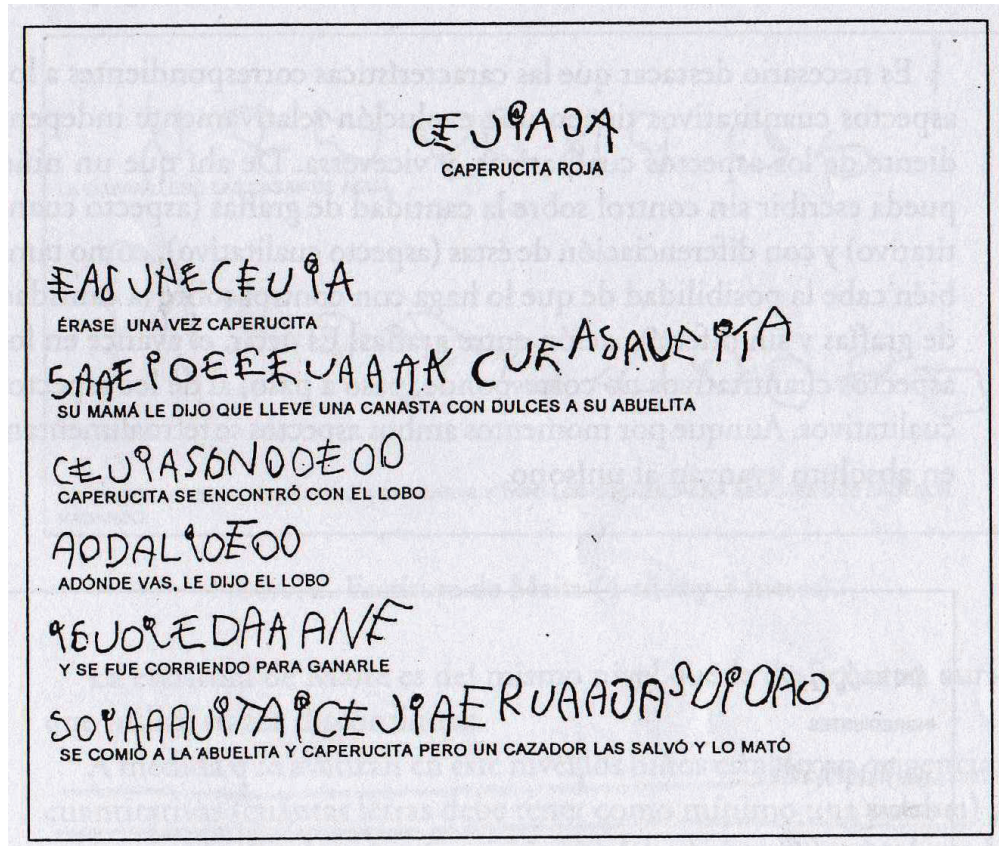 CEUiAOA
CAPERUCITA ROJA
EAS UNECEUiA
ÉRASE UNA VEZ CAPERUCITA
SAAEiDEEEUAAAK CUEASAUEiTA
SU MAMÁ LE DIJO QUE LLEVE UNA CANASTA CON DULCES A SU ABUELITA
CEUiASONDOEOO
CAPERUCITA SE ENCONTRÓ CON EL LOBO
AODALiOEOO
ADÓNDE VAS, LE DIJO EL LOBO
iEUOiEDAAANE
Y SE FUE CORRIENDO PARA GANARLE
SOiAAAUiTAiCEUiAERUAAOASOiOAO
SE COMIÓ A LA ABUELITA Y CAPERUCITA PERO UN CAZADOR LAS SALVÓ Y LO MATÓ